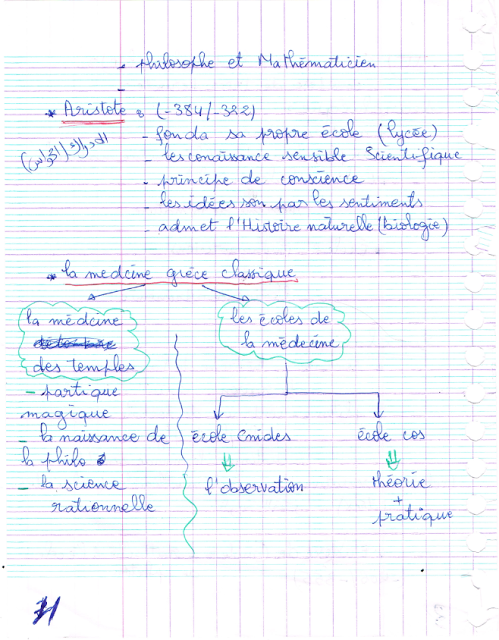 - Philosophe et Mathématicien
-
* Aristote : (-384/-322)
(الادراك الحواس)
- fonda sa propre école (lycée)
- les conaissance sensible Scientifique
- principe de conscience
- les idées son par les sentiments
- admet l'Histoire naturelle (biologie)
* la medcine grèce classique
la médcine
des temples
- partique
magique
- la naissance de
la philo
- la science
rationnelle
les écoles de
la médecine
école Cnides
l'observation
école cos
théorie
+
pratique